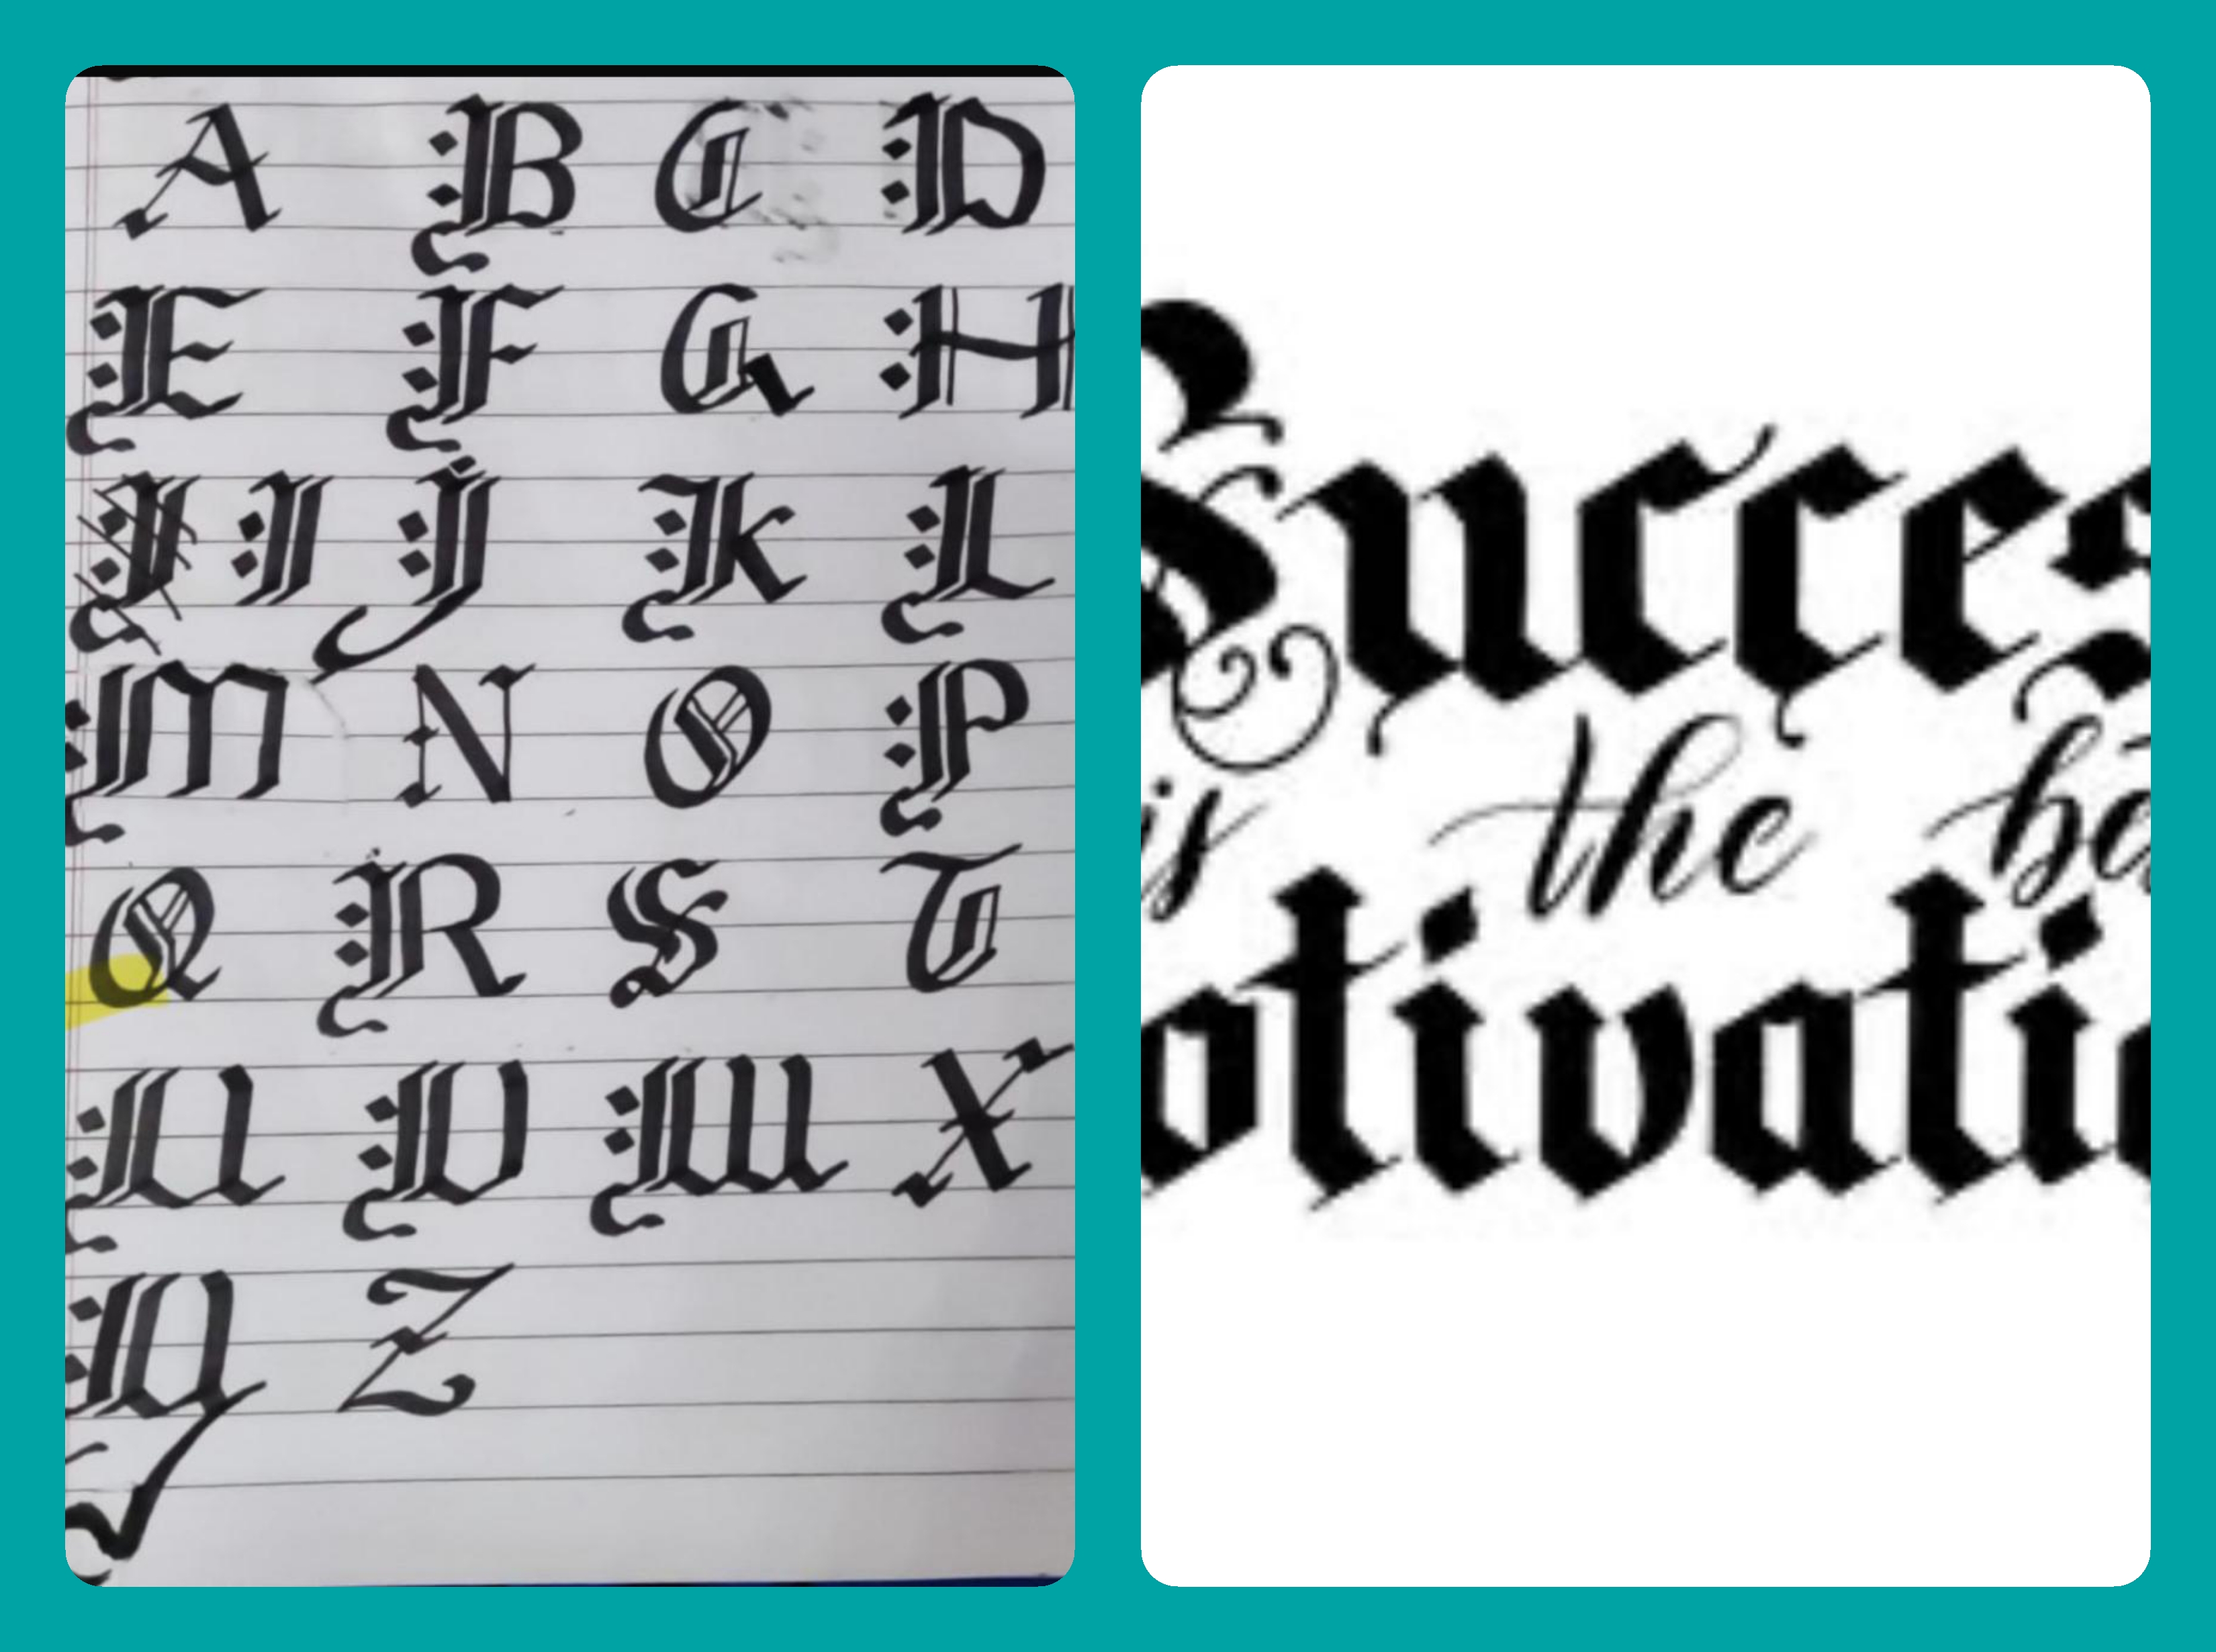 A B C D
E F G H
I J K L
M N O P
Q R S T
U V W X
Y Z
Succes
is the be
otivatio